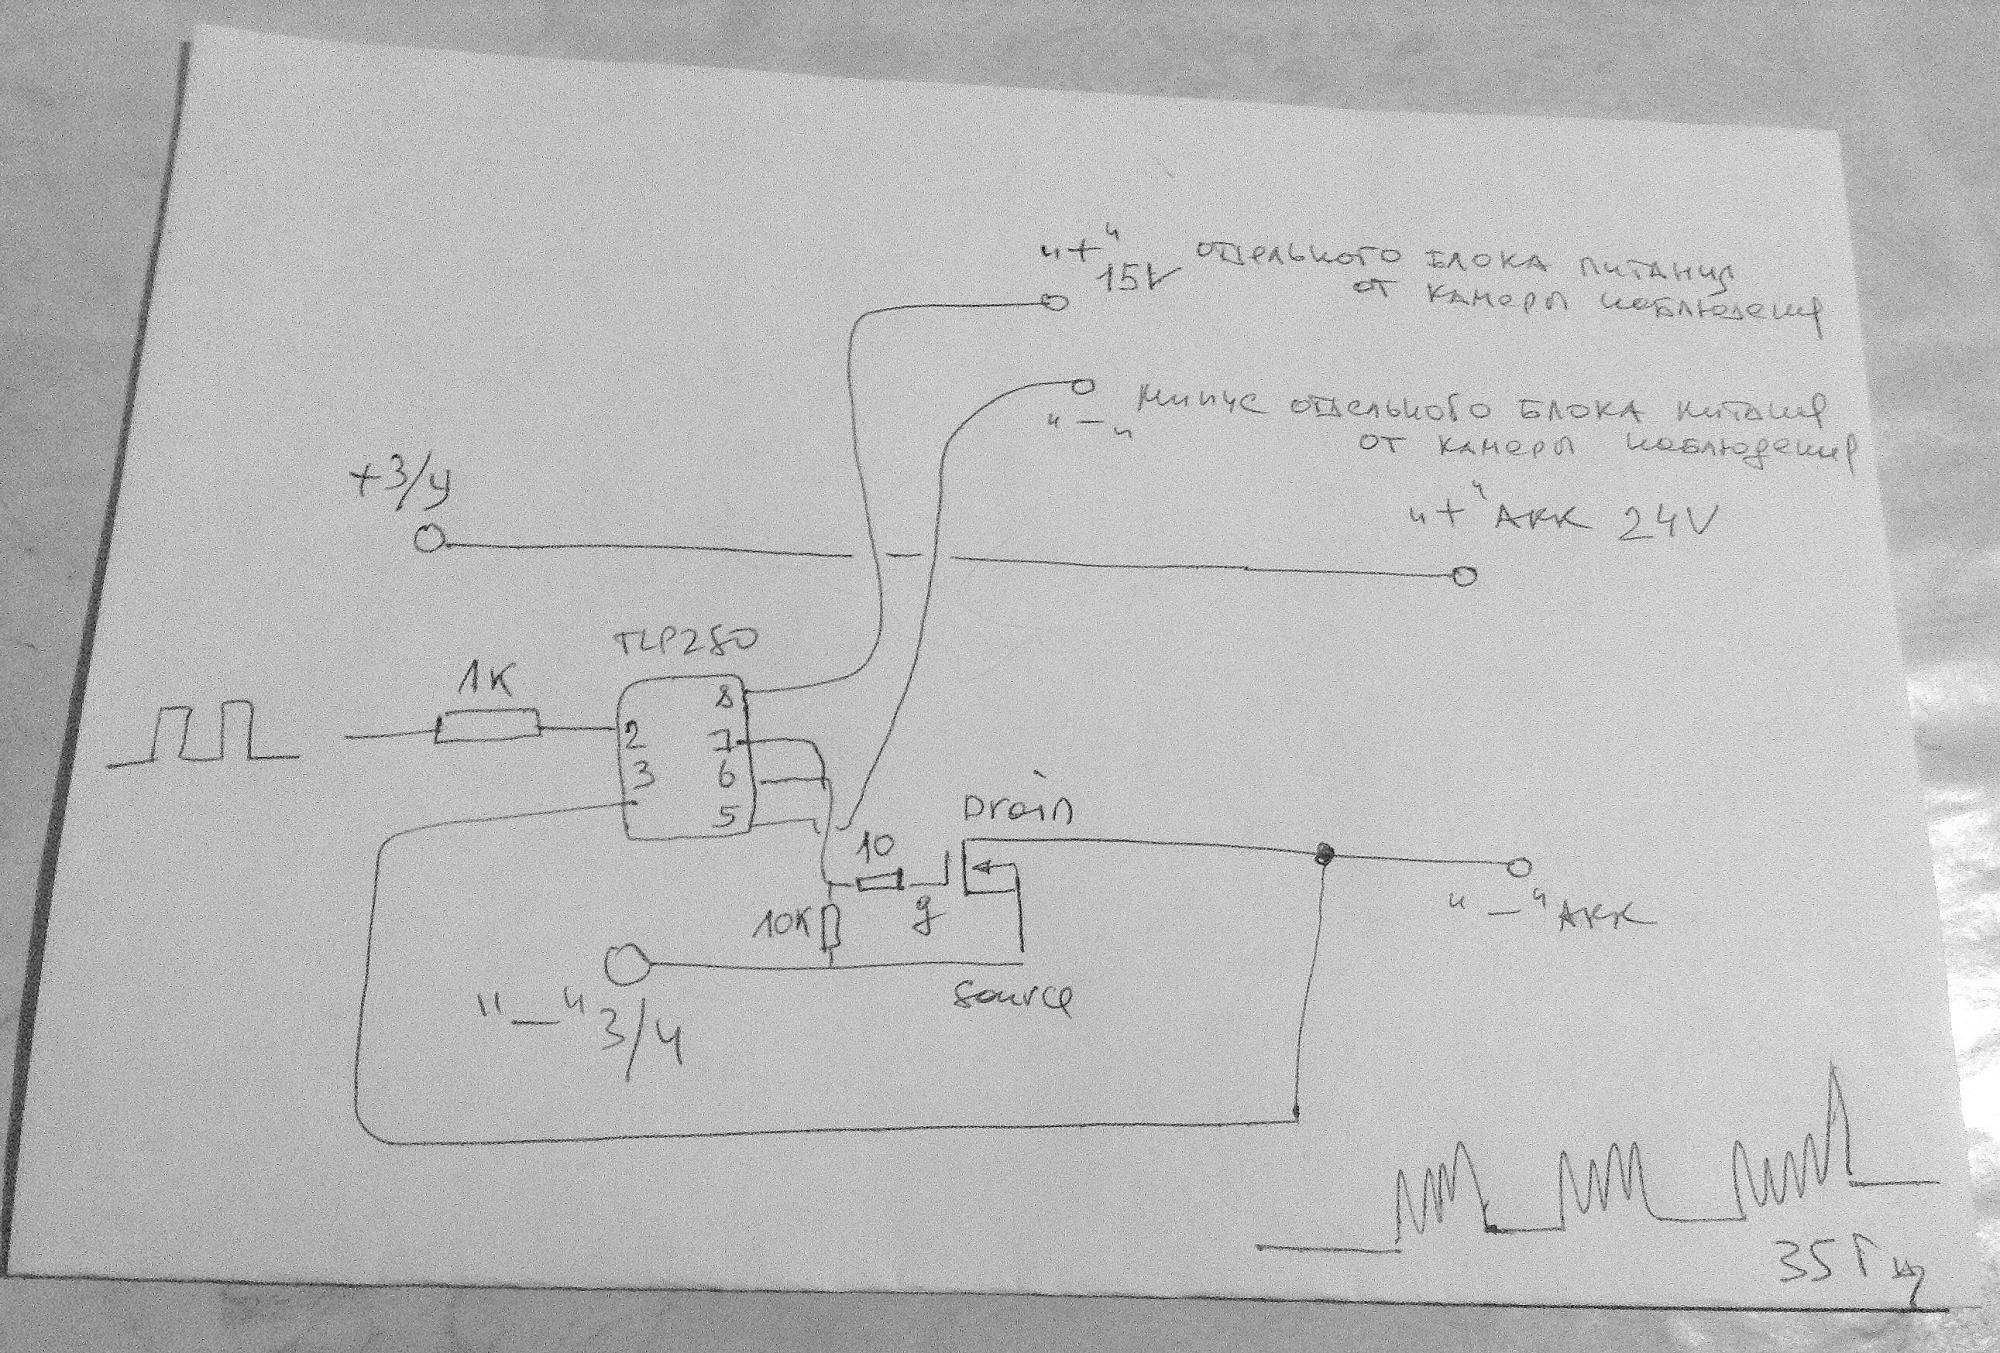 "+" 15V отдельного блока питания
от камеры наблюдения
"–" минус отдельного блока питания
от камеры наблюдения
+З/У
"+" АКК 24V
TLP280
1К
8
2 7
3 6
5
Drain
10
10К
g
"–" АКК
"–" З/У
Source
35 Гц